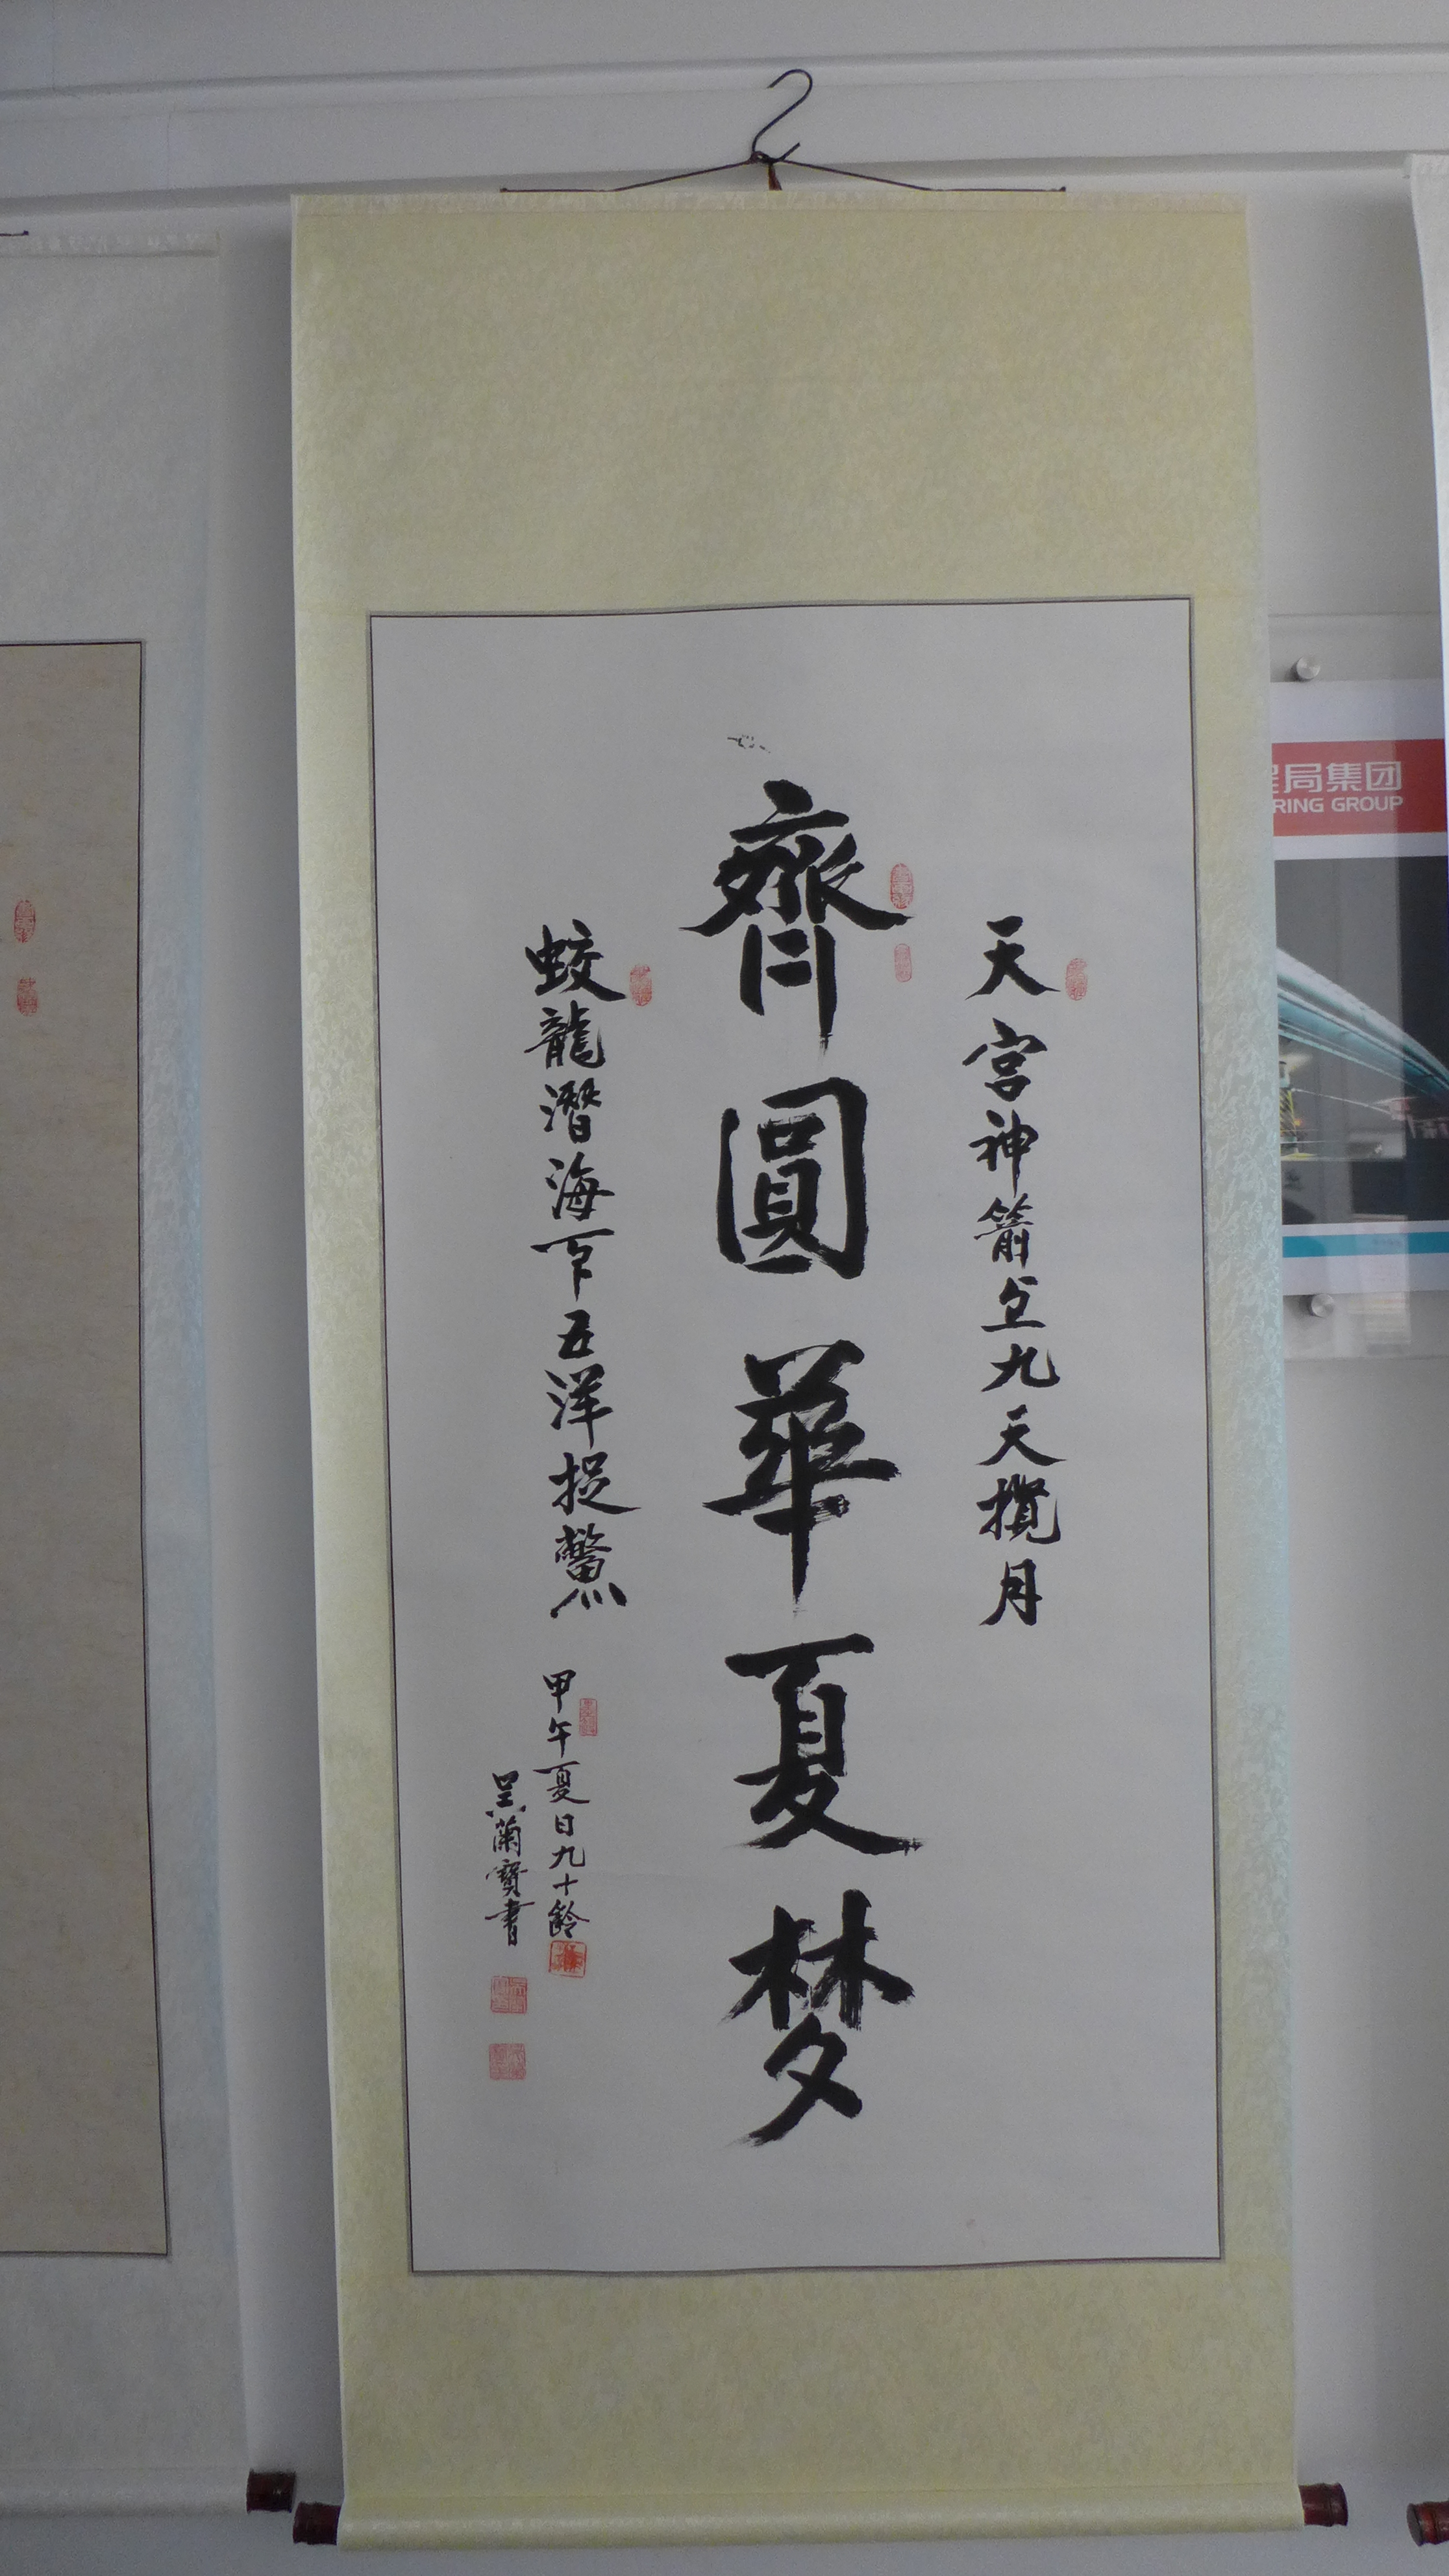 天宮神箭上九天攬月
齊圓華夏梦
蛟龍潛海下五洋捉鱉
甲午夏日九十齡
吳蘭寶書
局集团
RING GROUP